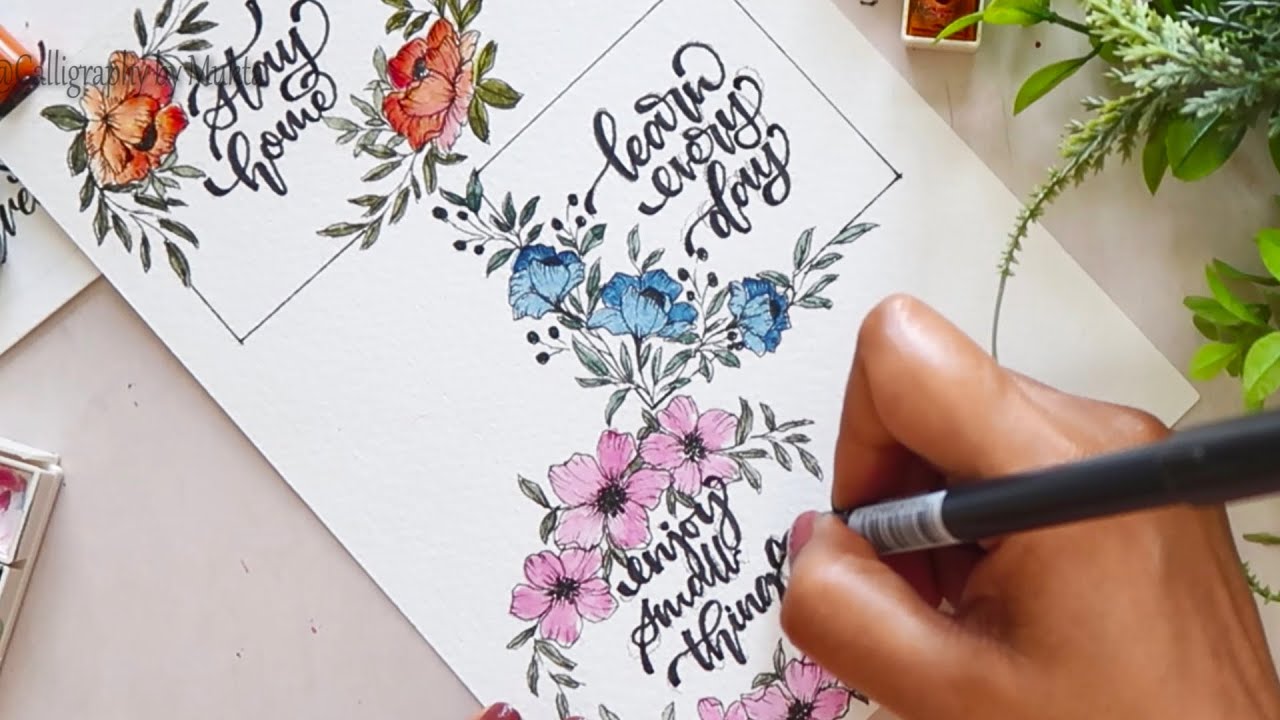 @Calligraphy by Mukta
stay
home
learn
every
day
enjoy
small
things